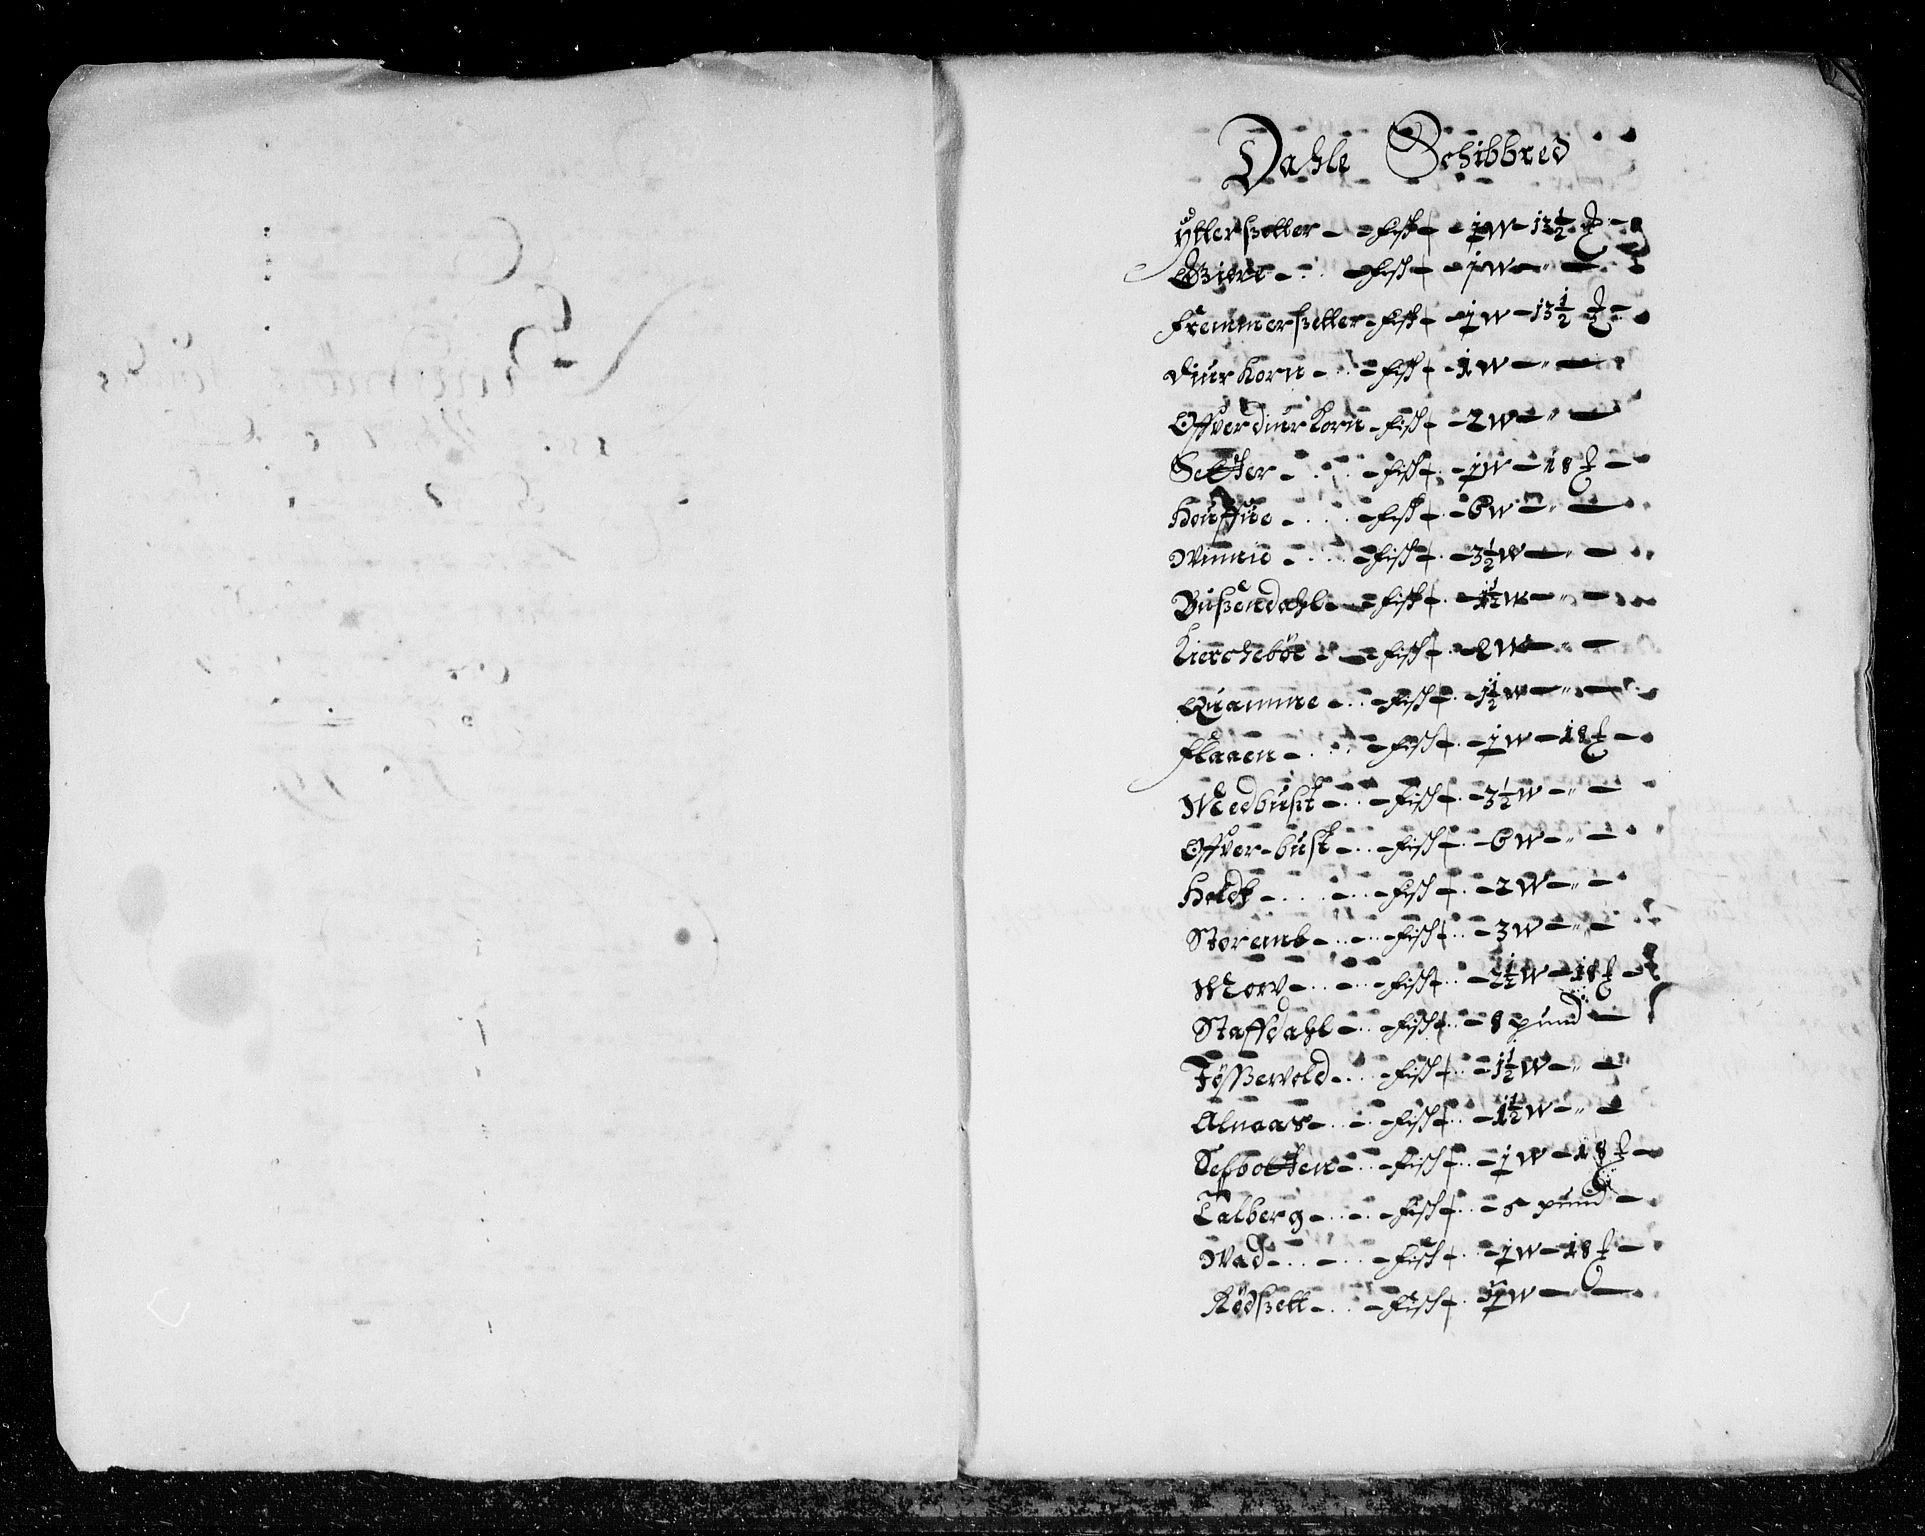 Dahle Schibbred
Ytterßetter - - Fisk - 1 W - 13½ ℔ -
Giere - - Fisk - 1 W - " -
Fremmerßetter - Fisk - 1 W - 13½ ℔ -
Diurkorn - - Fisk - 1 W - " -
Offverdiurkorn - Fisk - 2 W - " -
Setter - - Fisk - 1 W - 18 ℔ -
Houffue - - Fisk - 6 W - " -
Winnie - - Fisk - 3½ W - " -
Bußendahl - - Fisk - 1½ W - " -
Kierchebøe - - Fisk - 2 W - " -
Quamme - - Fisk - 1½ W - " -
Flaaen - - Fisk - 1 W - 18 ℔ -
Medbußt - - Fisk - 3½ W - " -
Offver-bust - - Fisk - 6 W - " -
Holdt - - Fisk - 2 W - " -
Storemb - - Fisk - 3 W - " -
Moov - - Fisk - 2½ W - 18 ℔ -
Staffdahl - - Fisk - 8 pund -
Føsßewold - - Fisk - 1½ W - " -
Alnaas - - Fisk - 1½ W - " -
Sefbotten - - Fisk - 1 W - 18 ℔ -
Talberg - - Fisk - 6 pund -
Wad - - Fisk - 1 W - 18 ℔ -
Rødßett - - Fisk - ½ W - -